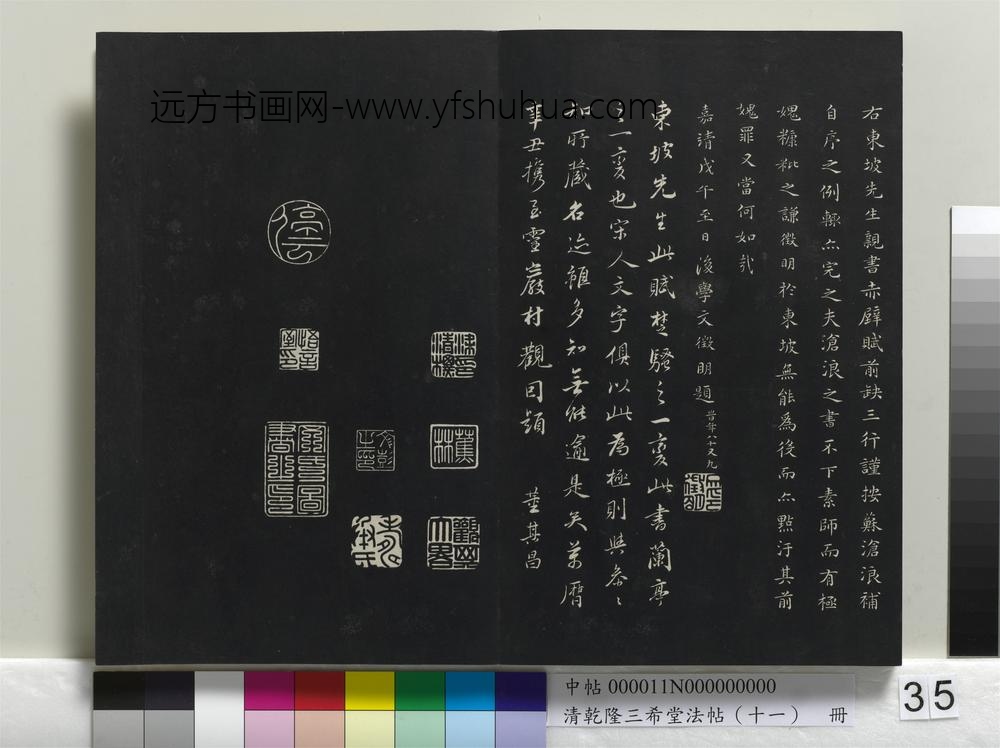 远方书画网-www.yfshuhua.com
右東坡先生親書赤壁賦前缺三行謹按蘇滄浪補
自序之例輒亦完之夫滄浪之書不下素師而有極
媿糠粃之謙徵明於東坡無能為役而亦點汙其前
媿罪又當何如哉
嘉靖戊午至日後學文徵明題 昔年八十又九
東坡先生此賦楚騷之一變此書蘭亭
之一變也宋人文字俱以此為極則與參參
知所藏名迹雖多知無能逾是矣萬曆
辛丑攜至靈巖村觀因題
董其昌
蕉林
觀其大略
文彭之印
中帖 000011N000000000
清乾隆三希堂法帖(十一) 冊
35